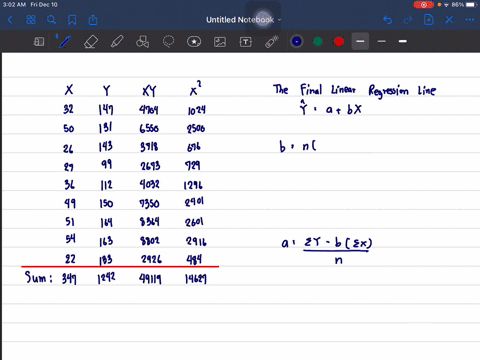 3:02 AM Fri Dec 10
86%
Untitled Notebook
X Y XY X²
32 147 4704 1024
50 131 6550 2500
26 143 3718 676
27 99 2673 729
36 112 4032 1296
49 150 7350 2401
51 164 8364 2601
54 163 8802 2916
22 133 2926 484
Sum: 347 1242 49119 14627
The Final Linear Regression Line
Ŷ = a + bX
b = n(
a = ΣY - b(ΣX)
n